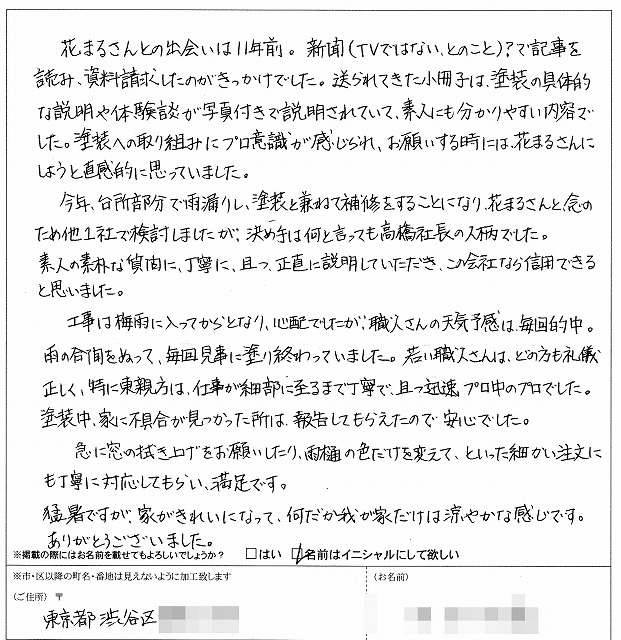 花まるさんとの出会いは11年前。新聞(TVではない、とのこと)?で記事を
読み、資料請求したのがきっかけでした。送られてきた小冊子は、塗装の具体的
な説明や体験談が写真付きで説明されていて、素人にも分かりやすい内容で
した。塗装への取り組みにプロ意識が感じられ、お願いする時には、花まるさんに
しようと直感的に思っていました。
今年、台所部分で雨漏りし、塗装と兼ねて補修をすることになり、花まるさんと、念の
ため他1社で検討しましたが、決め手は何と言っても高橋社長の人柄でした。
素人の素朴な質問に、丁寧に、且つ、正直に説明していただき、この会社なら信用できる
と思いました。
工事は梅雨に入ってからとなり、心配でしたが、職人さんの天気予感は、毎回的中。
雨の合間をぬって、毎回見事に塗り終わっていました。若い職人さんは、どの方も礼儀
正しく、特に東親方は、仕事が細部に至るまで丁寧で、且つ迅速。プロ中のプロでした。
塗装中、家に不具合が見つかった所は、報告してもらえたので安心でした。
急に窓の拭き上げをお願いしたり、雨樋の色だけを変えて、といった細かい注文に
も丁寧に対応してもらい、満足です。
猛暑ですが、家がきれいになって、何だか我が家だけは涼やかな感じです。
ありがとうございました。
※掲載の際にはお名前を載せてもよろしいでしょうか? □はい □名前はイニシャルにして欲しい
※市・区以降の町名・番地は見えないように加工致します
(ご住所) 〒
(お名前)
東京都渋谷区